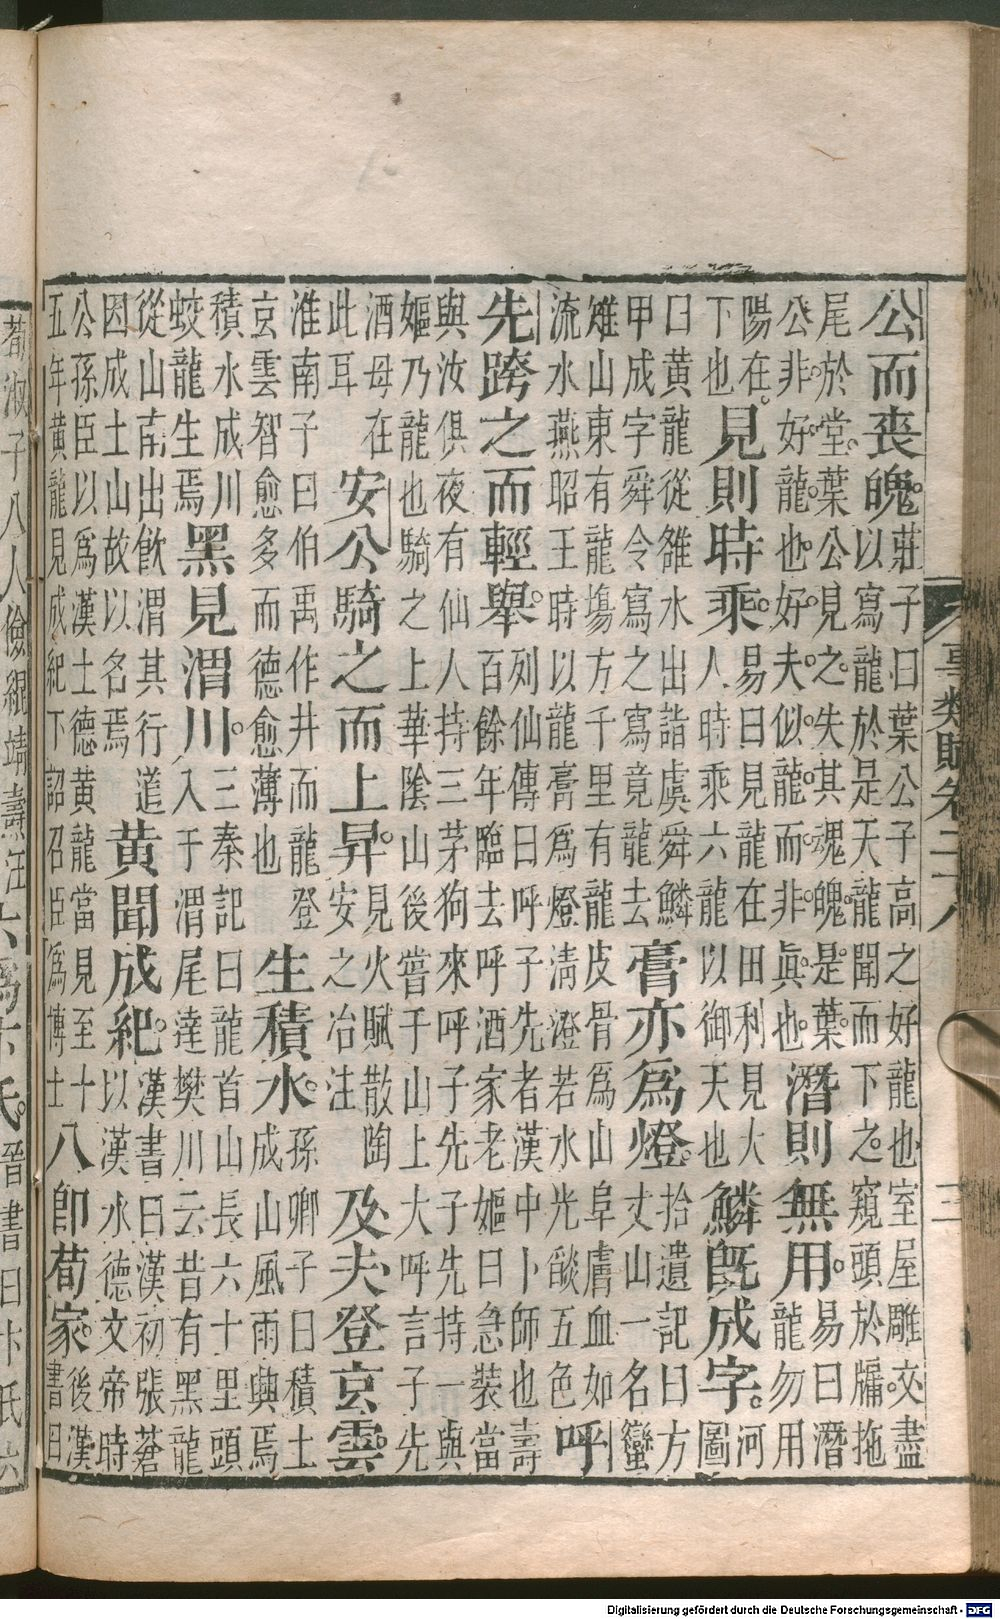 公而喪魄。莊子曰葉公子高之好龍也室屋雕文盡
以寫龍於是天龍聞而下之窺頭於牖拖
尾於堂葉公見之失其魂魄是葉
公非好龍也好夫似龍而非眞也
潛則無用。易曰潛
龍勿用
陽在
下也
見則時乘。易曰見龍在田利見大
人時乘六龍以御天也
鱗旣成字。河
圖
曰黄龍從雒水出詣虞舜鱗
甲成字舜令寫之寫竟龍去
膏亦爲燈。拾遺記曰方
丈山一名巒
雉山東有龍塲方千里有龍皮骨爲山阜膚血如
流水燕昭王時以龍膏爲燈清澄若水光燄五色
呼
先跨之而輕舉。列仙傳曰呼子先者漢中卜師也壽
百餘年臨去呼酒家老嫗曰急裝當
與汝俱夜有仙人持三茅狗來呼子先子先持一與
嫗乃龍也騎之上華陰山後嘗于山上大呼言子先
酒母在
此耳
安公騎之而上昇。見火賦散陶
安之冶注
及夫登玄雲。
淮南子曰伯禹作井而龍登
玄雲智愈多而德愈薄也
生積水。孫卿子曰積土
成山風雨興焉
積水成川
蛟龍生焉
黑見渭川。三秦記曰龍首山長六十里頭
入于渭尾達樊川云昔有黑龍
從山南出飲渭其行道
因成土山故以名焉
黄聞成紀。漢書曰漢初張蒼
以漢水德文帝時
公孫臣以爲漢土德黄龍當見至十
五年黄龍見成紀下詔召臣爲博士
八卽荀家。後漢
書曰
事類賦卷二十八
三
荀淑子八人儉緄靖燾汪
氏。晉書曰卞氏六
Digitalisierung gefördert durch die Deutsche Forschungsgemeinschaft - DFG